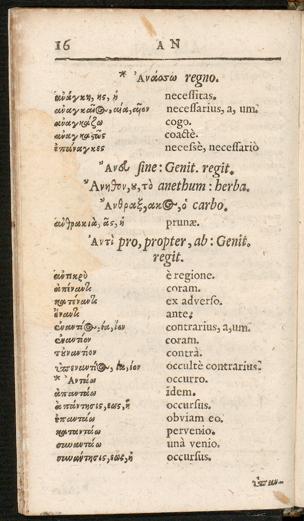 16 AN
* Ἀνάσσω regno.
ἀνάγκη, ης, ἡ necessitas.
ἀναγκαῖος, αία, αῖον necessarius, a, um.
ἀναγκάζω cogo.
ἀναγκαςῶς coactè.
ἐπάναγκες necessè, necessariò
Ἄνευ sine: Genit. regit.
Ἄνηθον, ου, τὸ anethum: herba.
Ἄνθραξ, ακος, ὁ carbo.
ἀνθρακιὰ, ᾶς, ἡ prunæ.
Ἀντὶ pro, propter, ab: Genit.
regit.
ἀντικρὺ è regione.
ἀπέναντι coram.
κατέναντι ex adverso.
ἔναντι ante.
ἐναντίος, ία, ίον contrarius, a, um.
ἐναντίον coram.
τοὐναντίον contrà.
ὑπεναντίος, ία, ίον occultè contrarius.
* Ἀντάω occurro.
ἀπαντάω idem.
ἀπάντησις, εως, ἡ occursus.
ἐπαντάω obviam eo.
καταντάω pervenio.
συναντάω unà venio.
συνάντησις, εως, ἡ occursus.